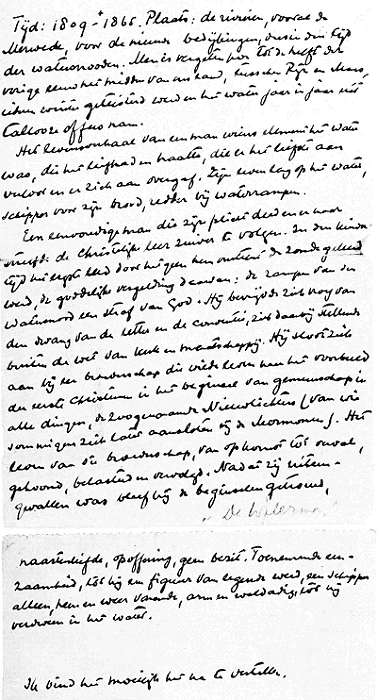 Tijd: 1809 - 1865. Plaats: de rivieren, vooral de
Merwede, voor de nieuwe bedijkingen, dus in den tijd
der watersnooden. Men is vergeten hoe tot de helft der
vorige eeuw het midden van ons land, tusschen Rijn en Maas,
iederen winter geteisterd werd en het water jaar in jaar uit
tallooze offers nam.
Het levensverhaal van een man wiens element het water
was, die het liefhad en haatte, die er het liefste aan
verloor en er zich aan overgaf. Zijn leven lang op het water,
schipper voor zijn brood, redder bij waterrampen.
Een eenvoudige man die zijn plicht deed en er naar
streefde de Christelijke leer zuiver te volgen. In den kinder-
tijd het hoofd door hetgeen hem omtrent de zonde geleerd
werd, de goddelijke vergelding daarvan: de rampen van den
watersnood een straf van God. Hij bevrijdde zich vroeg van
den dwang van de letter en de conventie, zich daarbij stellende
buiten de wet van kerk en maatschappij. Hij sloot zich
aan bij een broederschap die wilde leven naar het voorbeeld
der eerste Christenen in het beginsel van gemeenschap in
alle dingen, de zoogenaamde Nieuwlichters (van wie
sommigen zich later aansloten bij de Mormonen). Het
leven van die broederschap, van opkomst tot verval,
gehoond, belasterd en vervolgd. Nadat zij uiteen-
gevallen was bleef hij de beginselen getrouw,
"De Waterman"
naastenliefde, opoffering, geen bezit. Toenemende een-
zaamheid, tot hij een figuur van legende werd, een schipper
alleen, heen en weer varende, arm en weldadig, tot hij
verdween in het water.
Ik vind het moeilijk het na te vertellen.